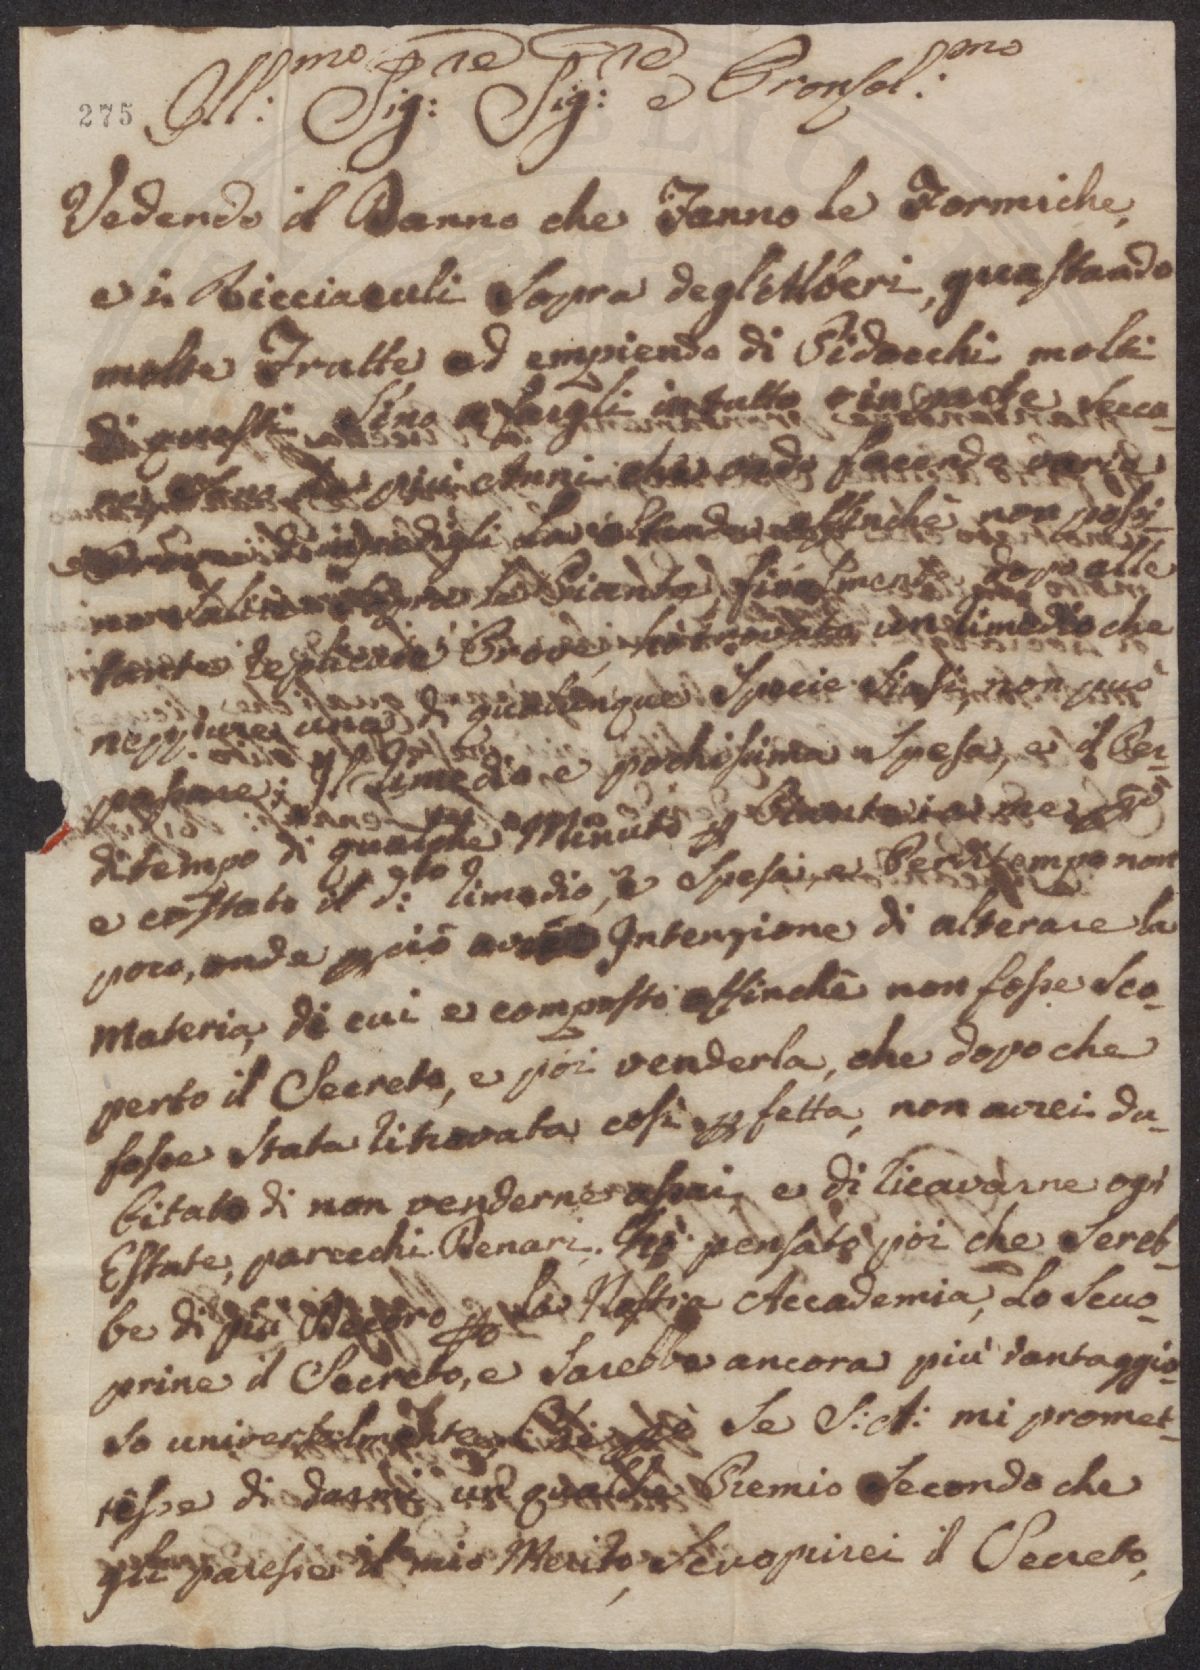 275
Ill:mo Sig:re Sig:re e Pronsol:mo
Vedendo il Danno che Fanno le Formiche,
e i Ricciaculi Sopra degl'Alberi, guastando
molte Frutte ed empiendo di Pidocchi molti
di questi Sino a fargli in tutto o in parte secca-
re, più Anni che vado facendo varie
affinchè non possi-
no Salire sopra le Piante, finalmente dopo alle
tante replicate Prove, hò trovato un limedio che
neppure una di qualunque Specie siasi, non può
passare; limedio e pochissima Spesa, e il Per-
ditempo di qualche Minuto p Pianta; a me però
e costato il d:to limedio, e Spesa, e Perditempo non
poco, onde p ciò Intenzione di alterare la
Materia, di cui e composto affinchè non fosse sco-
perto il Secreto, e poi venderla, che dopo che
fosse Stata litrovata così pfetta, non avrei du-
bitato di non venderne assai, e di licavarne ogi
Estate, parecchi Denari. Hò pensato poi che Sereb-
be di più Decoro p la Nostra Accademia, Lo scuo-
prine il Secreto, e Sarebbe ancora più vantaggio-
so universalmente, Se S: A: mi promet-
tesse di darmi un qualche Premio Secondo che
gli paresse il mio Merito, Scuopirei il Secreto,